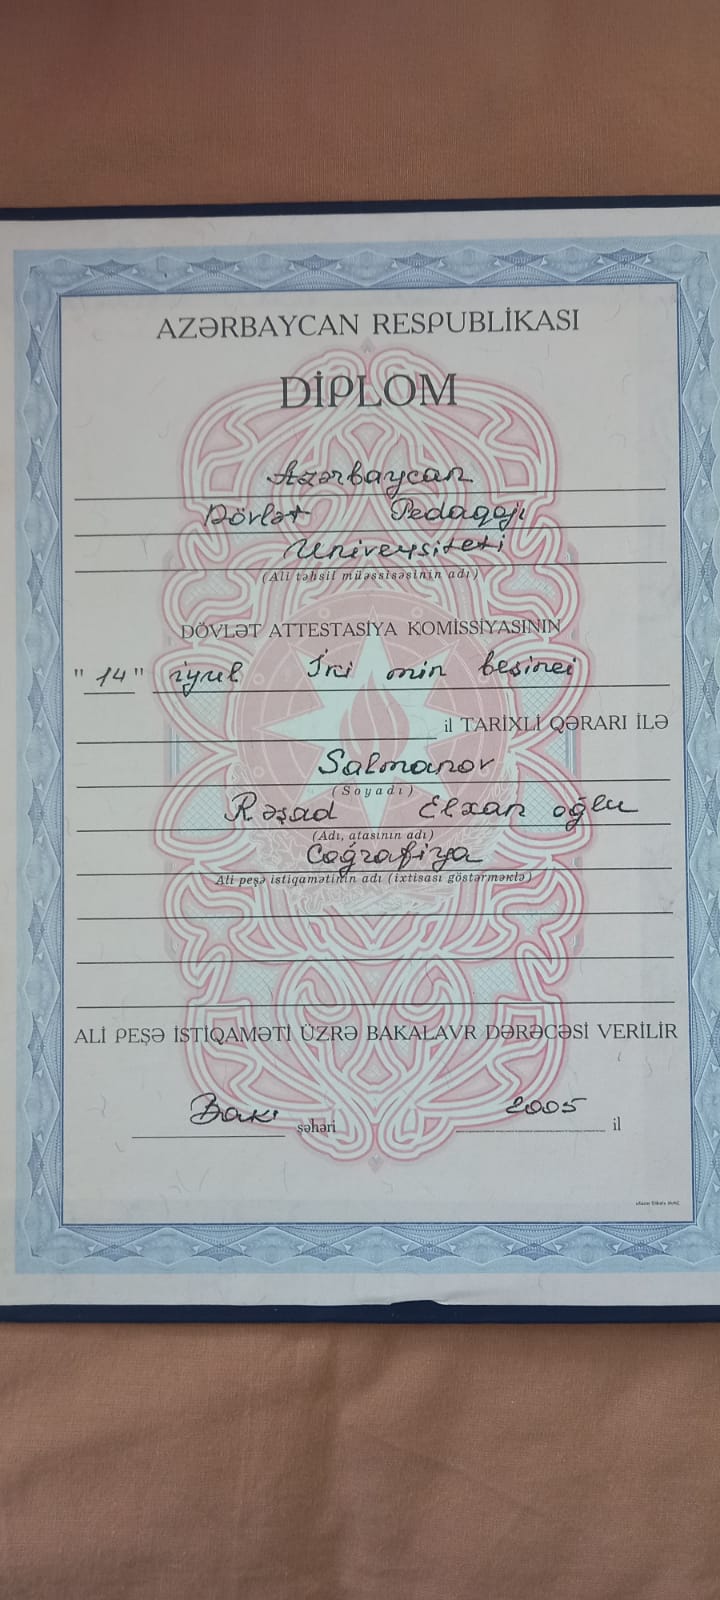 AZƏRBAYCAN RESPUBLİKASI
DİPLOM
Azərbaycan
Dövlət Pedaqoji
Universiteti
(Ali təhsil müəssisəsinin adı)
DÖVLƏT ATTESTASİYA KOMİSSİYASININ
"14" iyul İki min beşinci
il TARİXLİ QƏRARI İLƏ
Salmanov
(Soyadı)
Rəşad Elxan oğlu
(Adı, atasının adı)
Coğrafiya
Ali peşə istiqamətinin adı (ixtisası göstərməklə)
ALİ PEŞƏ İSTİQAMƏTİ ÜZRƏ BAKALAVR DƏRƏCƏSİ VERİLİR
Bakı şəhəri 2005 il